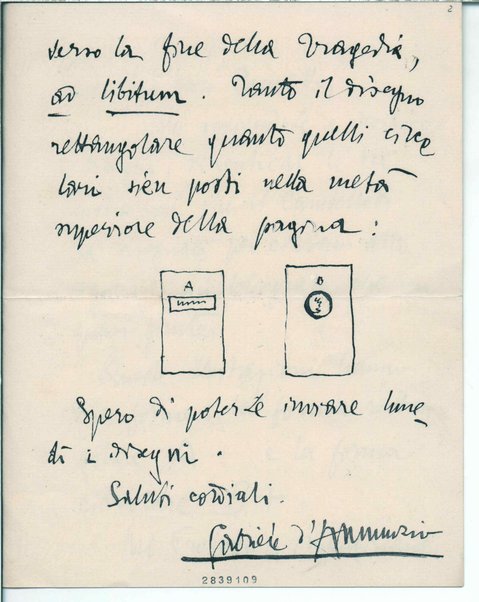 2
verso la fine della tragedia,
ad libitum. Tanto il disegno
rettangolare quanto quelli circo
lari sien posti nella metà
superiore della pagina:
A B
Spero di poterLe inviare lune
dì i disegni.
Saluti cordiali.
Gabriele d'Annunzio
2839109